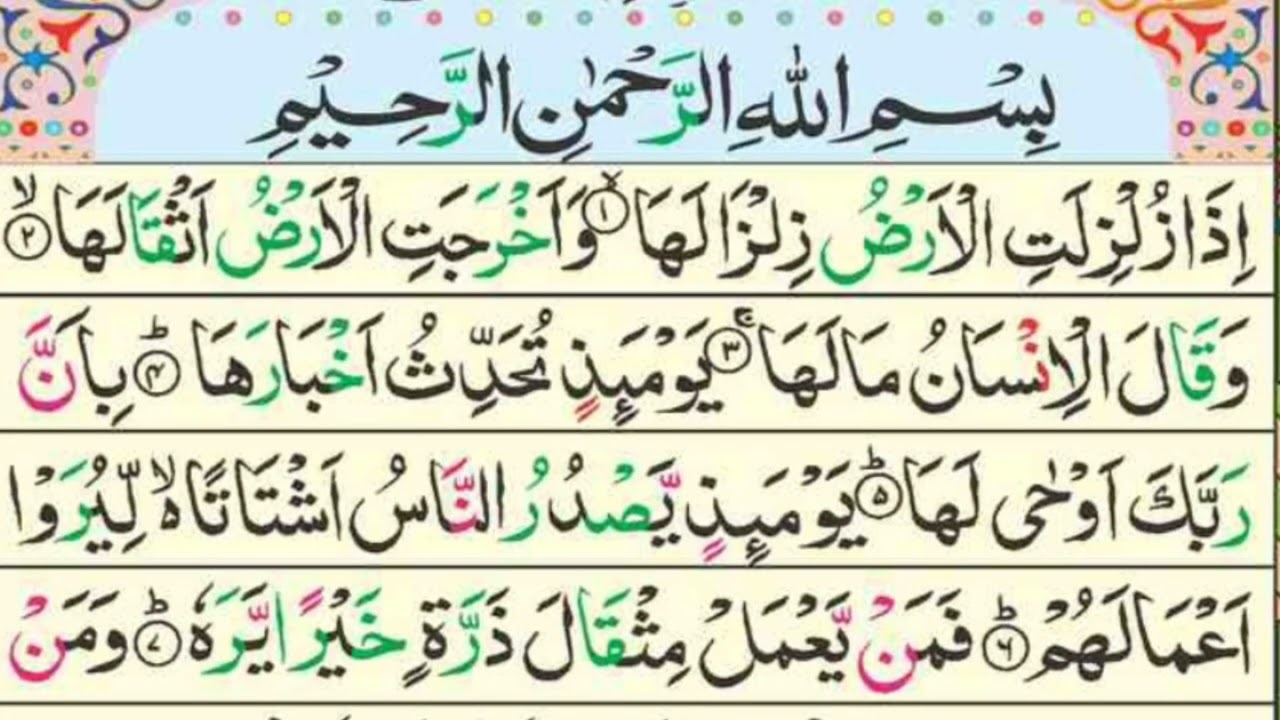 بِسْمِ اللهِ الرَّحْمٰنِ الرَّحِيْمِ
اِذَا زُلْزِلَتِ الْاَرْضُ زِلْزَالَهَا ۙ﴿۱﴾ وَاَخْرَجَتِ الْاَرْضُ اَثْقَالَهَا ۙ﴿۲﴾
وَقَالَ الْاِنْسَانُ مَا لَهَا ۚ﴿۳﴾ يَوْمَىِٕذٍ تُحَدِّثُ اَخْبَارَهَا ؕ﴿۴﴾ بِاَنَّ
رَبَّكَ اَوْحٰى لَهَا ؕ﴿۵﴾ يَوْمَىِٕذٍ يَّصْدُرُ النَّاسُ اَشْتَاتًا ۙ۬ لِّيُرَوْا
اَعْمَالَهُمْ ؕ﴿۶﴾ فَمَنْ يَّعْمَلْ مِثْقَالَ ذَرَّةٍ خَيْرًا يَّرَهٗ ؕ﴿۷﴾ وَمَنْ